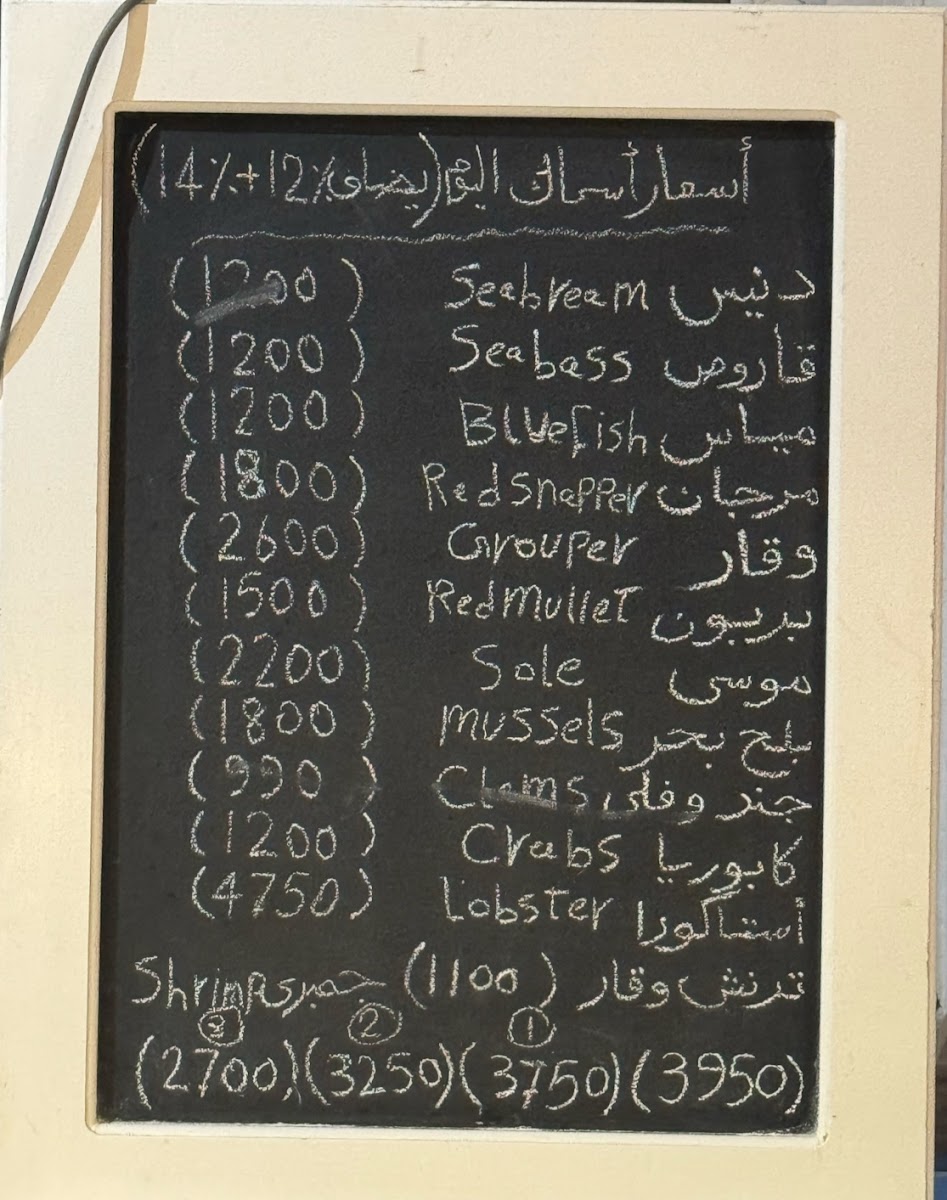 أسعار أسماك اليوم (يضاف 12%+14%)
دنيس Seabream (1200)
قاروص Seabass (1200)
مياس Bluefish (1200)
مرجان Red Snapper (1800)
وقار Grouper (2600)
بربون Red mullet (1500)
موسى Sole (2200)
بلح بحر mussels (1800)
جندوفلى Clams (990)
كابوريا Crabs (1200)
أستاكوزا Lobster (4750)
ترنش وقار (1100) جمبرى Shrimps
① ② ③
(3950) (3750) (3250) (2700)